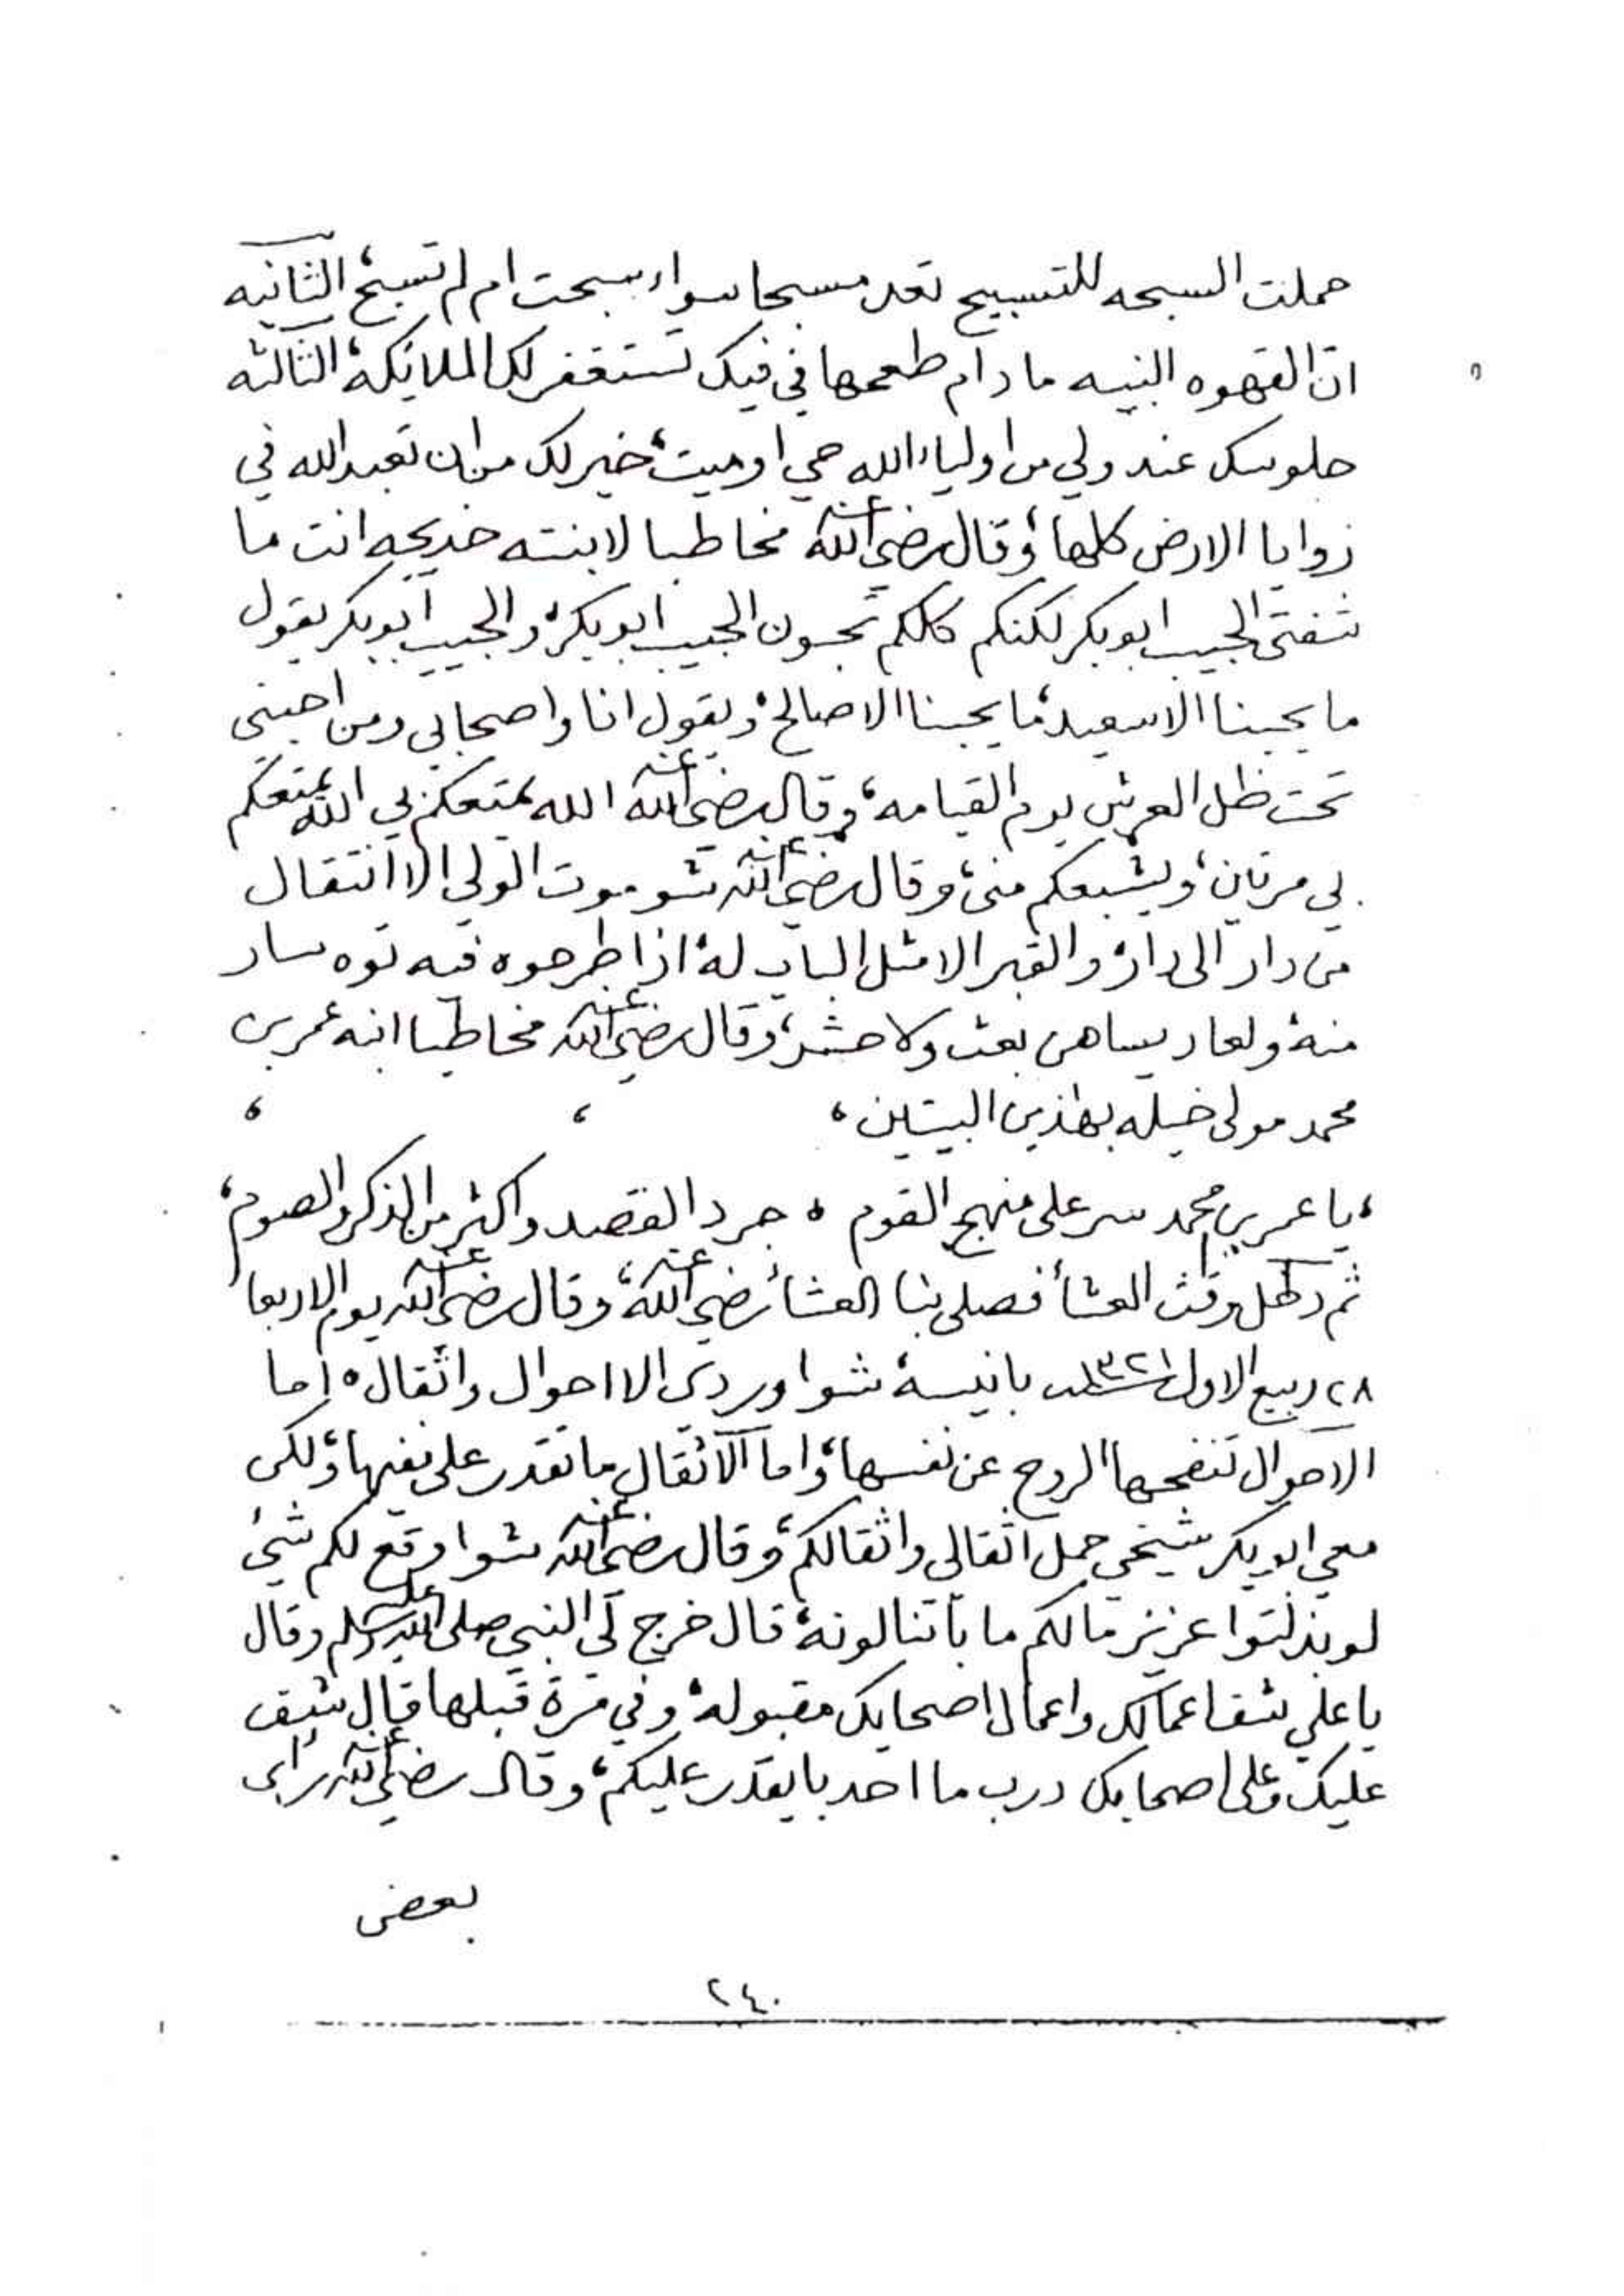 حملت السبحه للتسبيح تعد مسبحا سواء سبحت ام لم تسبح، الثانيه
ان القهوه البنيه ما دام طعمها في فيك تستغفر لك الملائكة، الثالثه
جلوسك عند ولي من اولياء الله حي او ميت، خير لك من ان تعبد الله في
زوايا الارض كلها، وقال رضي الله عنه مخاطبا لابنته خديجه انت ما
شفتي الحبيب ابوبكر لكنكم كلكم تحبون الحبيب ابوبكر، والحبيب ابوبكر يقول
ما يحبنا الا سعيد، ما يحبنا الا صالح، ويقول انا واصحابي ومن احبني
تحت ظل العرش يوم القيامه، وقال رضي الله عنه الله يمتعكم بي الله يمتعكم
بي مرتان، ويشبعكم مني، وقال رضي الله عنه شو موت الولي الا انتقال
من دار الى دار، والقبر الا مثل الباب له، اذا طرحوه فيه توه سار
منه، ولعاد يساهن بعث ولا حشر، وقال رضي الله عنه مخاطبا ابنه عمر بن
محمد مولى خيله بهذين البيتين،
،يا عمر بن محمد سر على منهج القوم ٥ جرد القصد واكثر من الذكر والصوم،
ثم دخل وقت العشأ فصلى بنا العشأ رضي الله عنه، وقال رضي الله عنه يوم الاربعا
٢٨ ربيع الاول ١٣٢١ بانيسة، شوا وردى الا احوال واثقال ٥ اما
الاحوال تنفحها الروح عن نفسها، واما الاثقال ما تقدر على نفيها، ولكن
معي ابوبكر شيخي حمل اثقالي واثقالكم، وقال رضي الله عنه شوا وقع لكم شيء
لو بذلتوا عزيز مالكم ما باتنالونه، قال خرج لي النبي صلى الله عليه وسلم وقال
يا علي شف اعمالك واعمال اصحابك مقبوله، وفي مرة قبلها قال شف
عليك وعلى اصحابك درب ما احد بايقدر عليكم، وقال رضي الله عنه رأى
بعض
٢٤٠